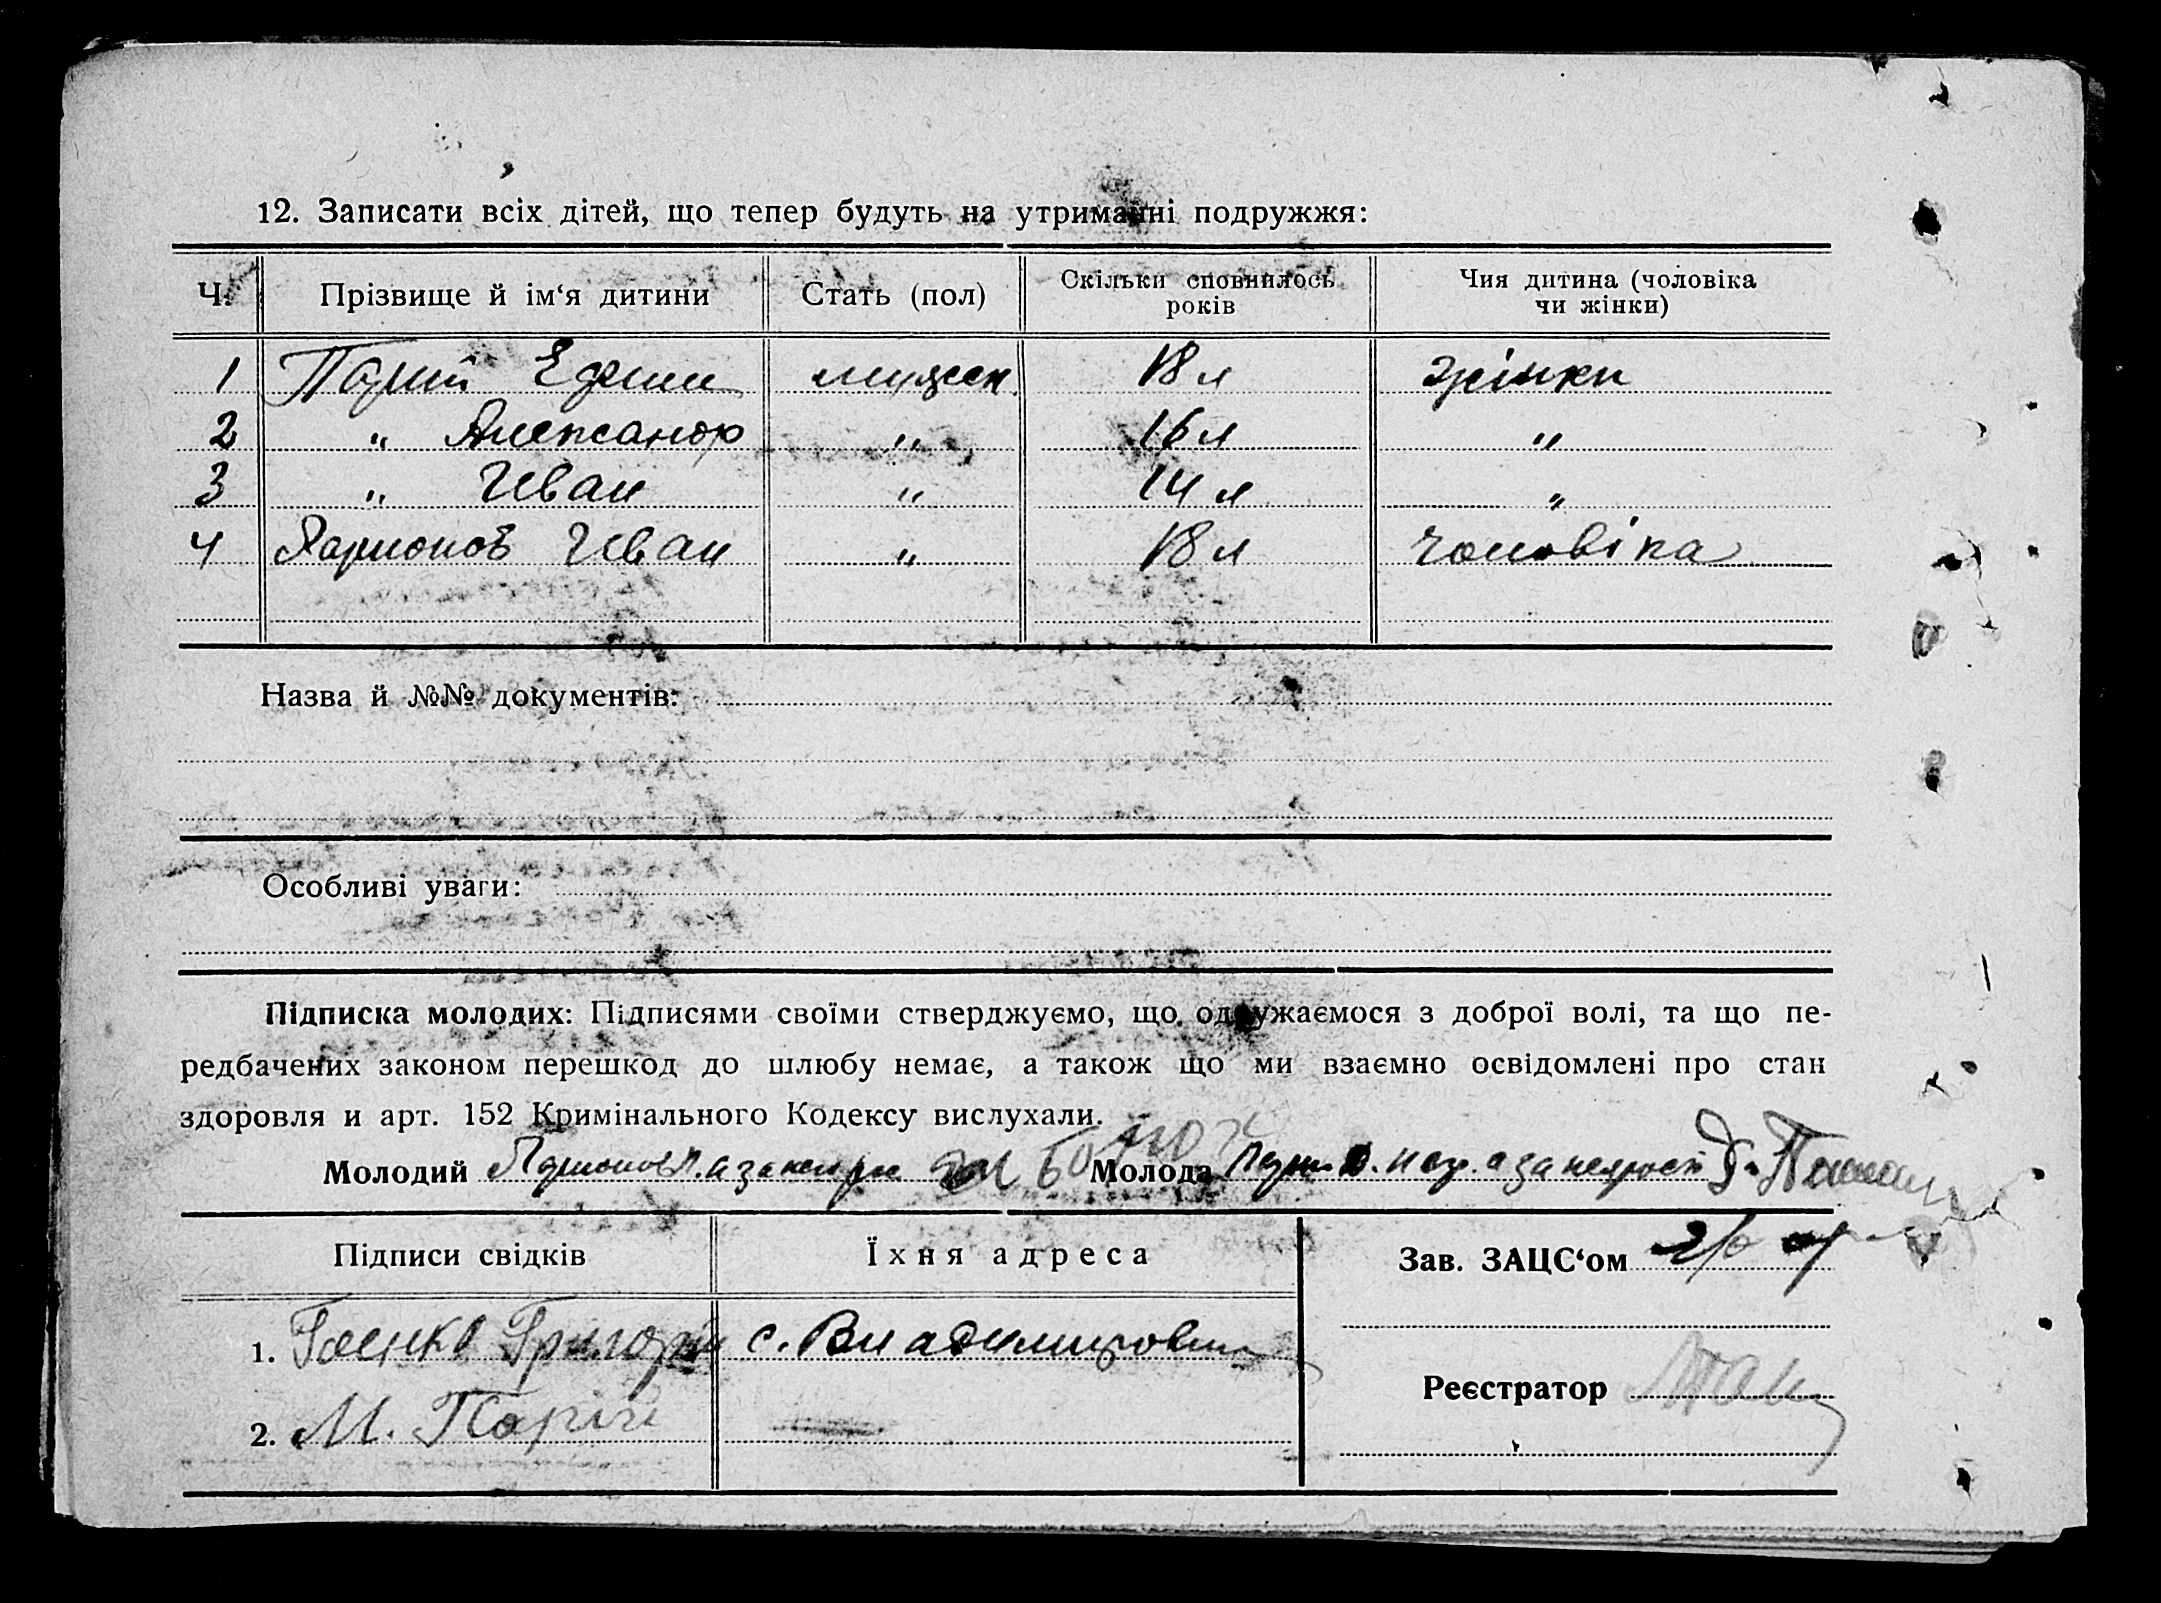 12. Записати всіх дітей, що тепер будуть на утриманні подружжя:
Ч. Прізвище й ім‘я дитини Стать (пол) Скільки сповнилось років Чия дитина (чоловіка чи жінки)
1 Парій 18 л жінки
2 " Александр " 16 л "
3 " Иван " 14 л "
4 Ларионов Иван " 18 л чоловіка
Назва й №№ документів:
Особливі уваги:
Підписка молодих: Підписями своїми стверджуємо, що одружаємося з доброї волі, та що пе-
редбачених законом перешкод до шлюбу немає, а також що ми взаємно освідомлені про стан
здоровля и арт. 152 Кримінального Кодексу вислухали.
Молодий Ларионов Л. а за негр. Молода а за неграмот
Підписи свідків Їхня адреса Зав. ЗАЦС‘ом
1. Григорій с. Владимировка
2. М. Парій
Реєстратор